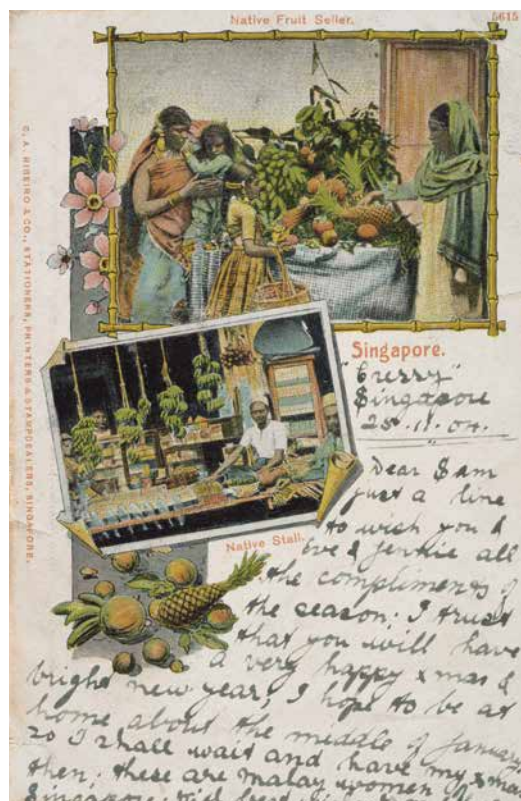 Native Fruit Seller.
5615
C. A. RIBEIRO & CO., STATIONERS, PRINTERS & STAMPDEALERS, SINGAPORE.
Singapore.
Singapore
25.11.04.
Native Stall.
Dear Sam
just a line
to wish you &
Eve & Jennie all
the compliments of
the season; I trust
that you will have
a very happy xmas &
bright new year, I hope to be at
home about the middle of January
so I shall wait and have my xmas
then: these are malay women of
Singapore